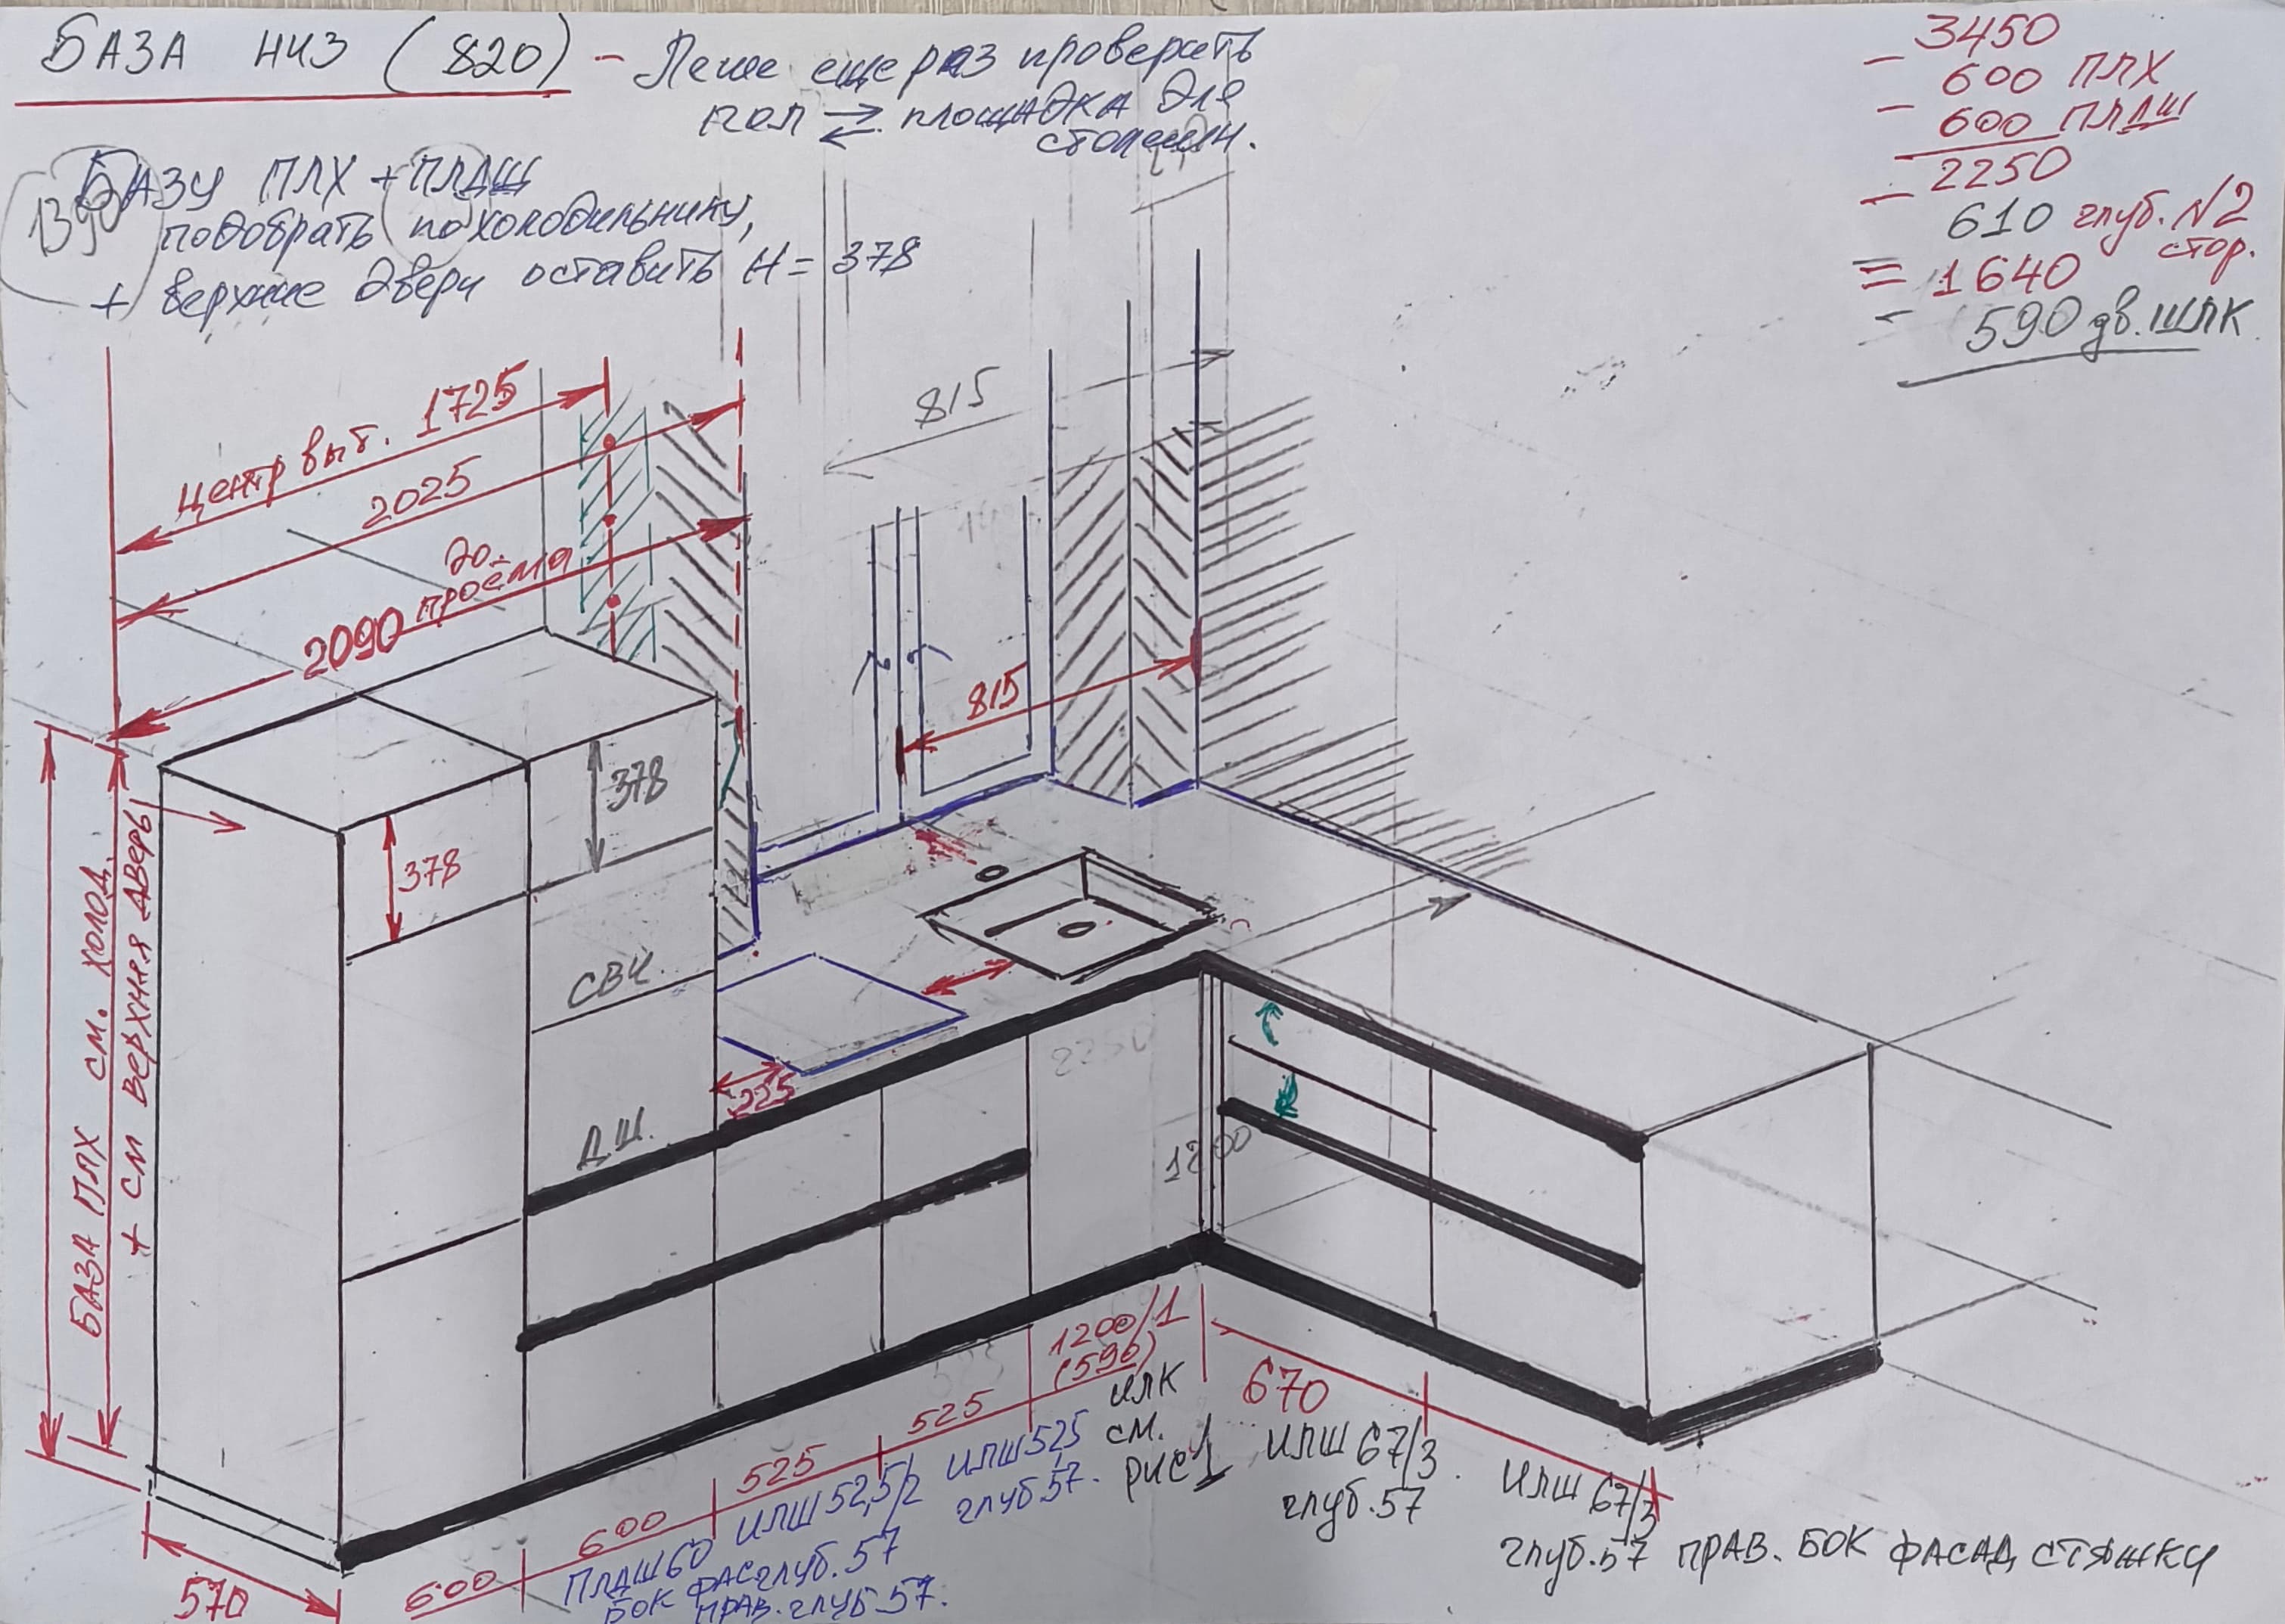 БАЗА НИЗ (820) - Леше еще раз проверить
пол ⇄ площадка для
столешн.
БАЗУ ПЛХ + ПЛДШ
подобрать по холодильнику,
+ верхние двери оставить H = 378
1390
3450
- 600 ПЛХ
- 600 ПЛДШ
2250
- 610 глуб. №2
стор.
= 1640
- 590 дв. ШЛК
Центр выт. 1725
2025
2090 до проёма
815
815
378
378
СВЧ
Д.Ш.
225
2250
1200
БАЗА ПЛХ см. холод.
+ см верхняя дверь
570
600
600
525
525
1200/1
(596)
670
ПЛДШ 60
БОК ФАС глуб. 57
ПРАВ. глуб 57.
ИЛШ 52,5/2
ИЛШ 52,5
глуб 57.
ИЛК
см.
рис 1
ИЛШ 67/3.
глуб. 57
ИЛШ 67/3
глуб. 57 ПРАВ. БОК ФАСАД СТЯЖКИ